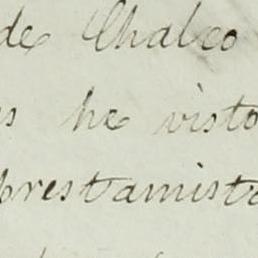 de Chalco
es he visto
prestamista